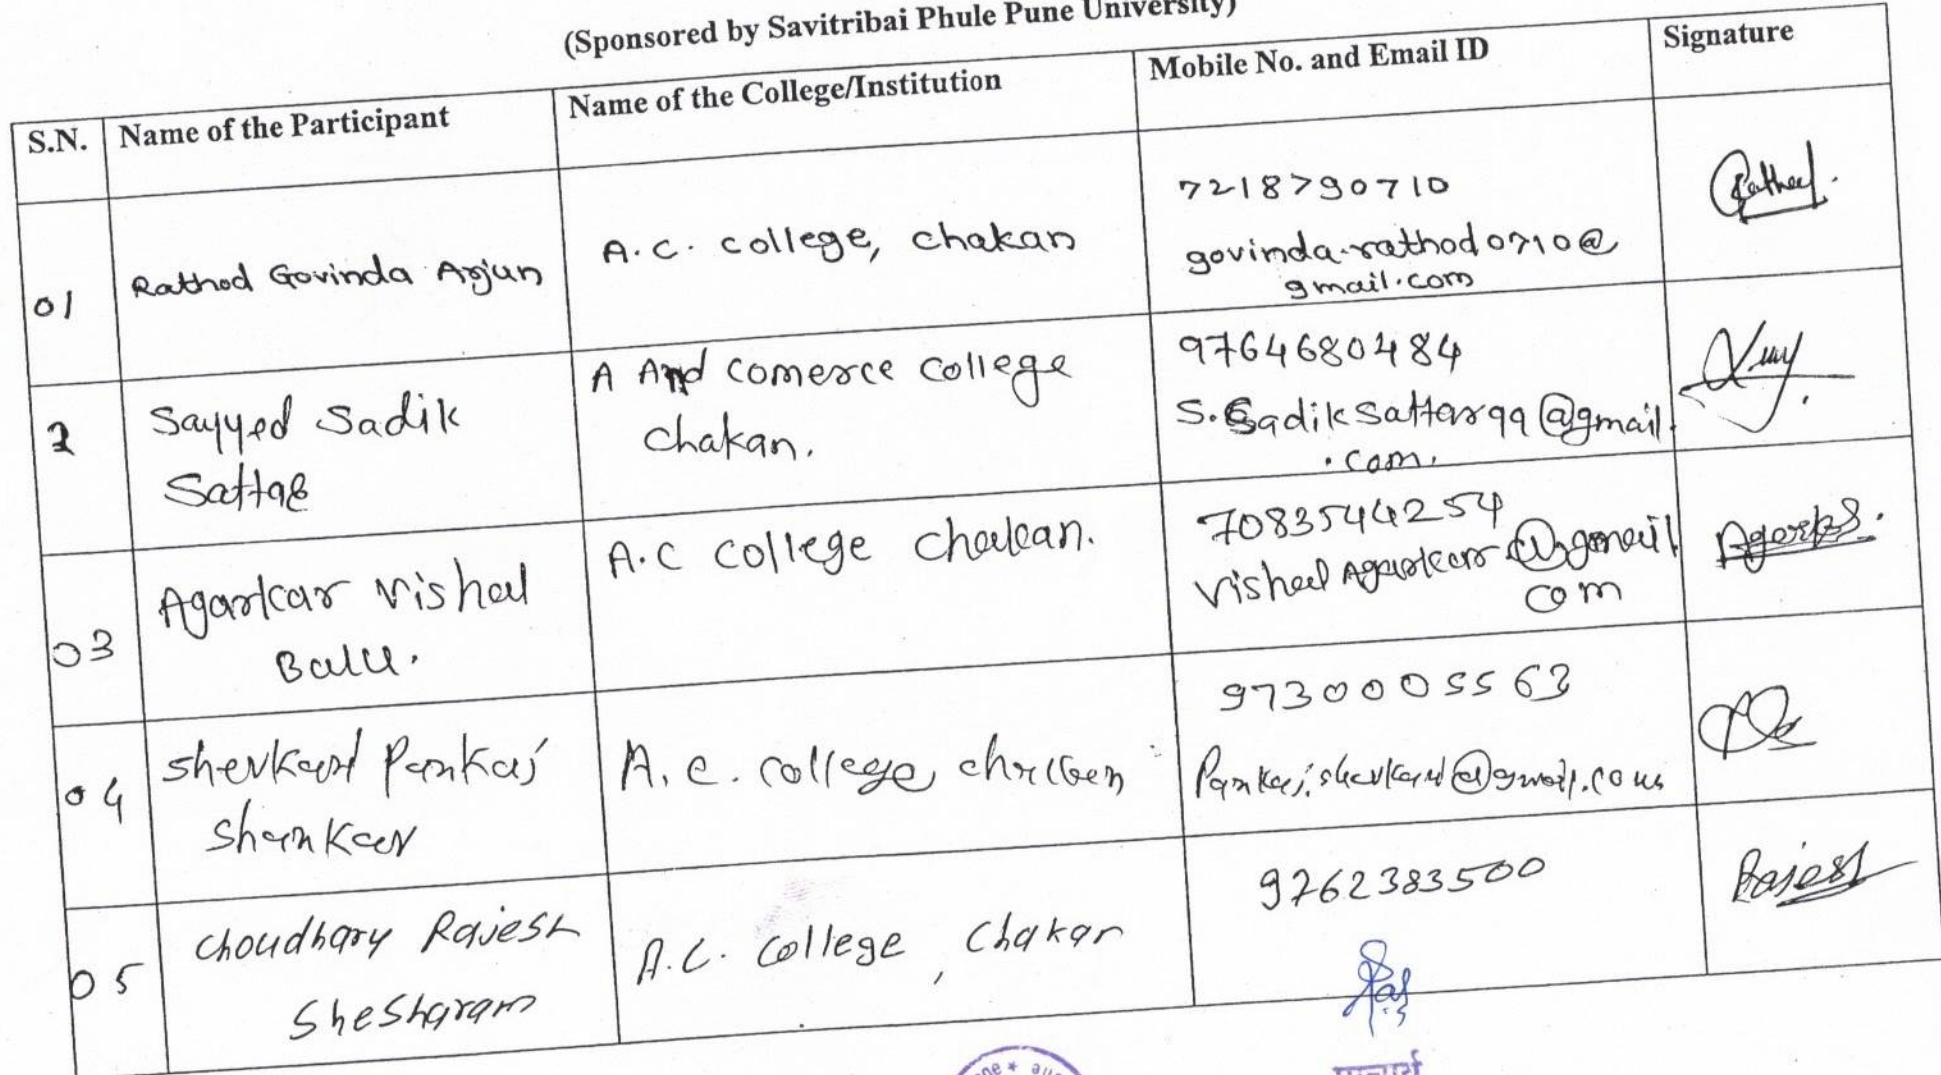 (Sponsored by Savitribai Phule Pune University)
S.N. Name of the Participant Name of the College/Institution Mobile No. and Email ID Signature
01 Rathod Govinda Arjun A.C. college, chakan 7218790710 Rathod.
govinda.rathod0710@
gmail.com
2 Sayyed Sadik A And comerce college 9764680484
Sattar chakan. S.Sadiksattar99@gmail
.com.
03 Agarkar Vishal A.C college chakan. 7083544254
Balu. VishalAgarkar@gmail
com
04 Shevkard Pankaj A.C. college, chakan 9730005563
Shankar Pankaj.shevkard@gmail.com
05 Choudhary Rajesh A.C. College, Chakan 9762383500 Rajesh
Shesharam
प्राचार्य